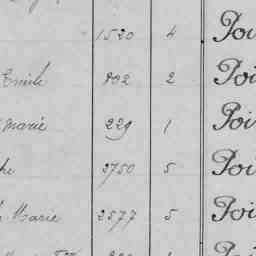 1520 4 Poi
Emile 802 2 Poi
Marie 229 1 Poi
he 3750 5 Poi
Marie 2577 5 Poi
Poi